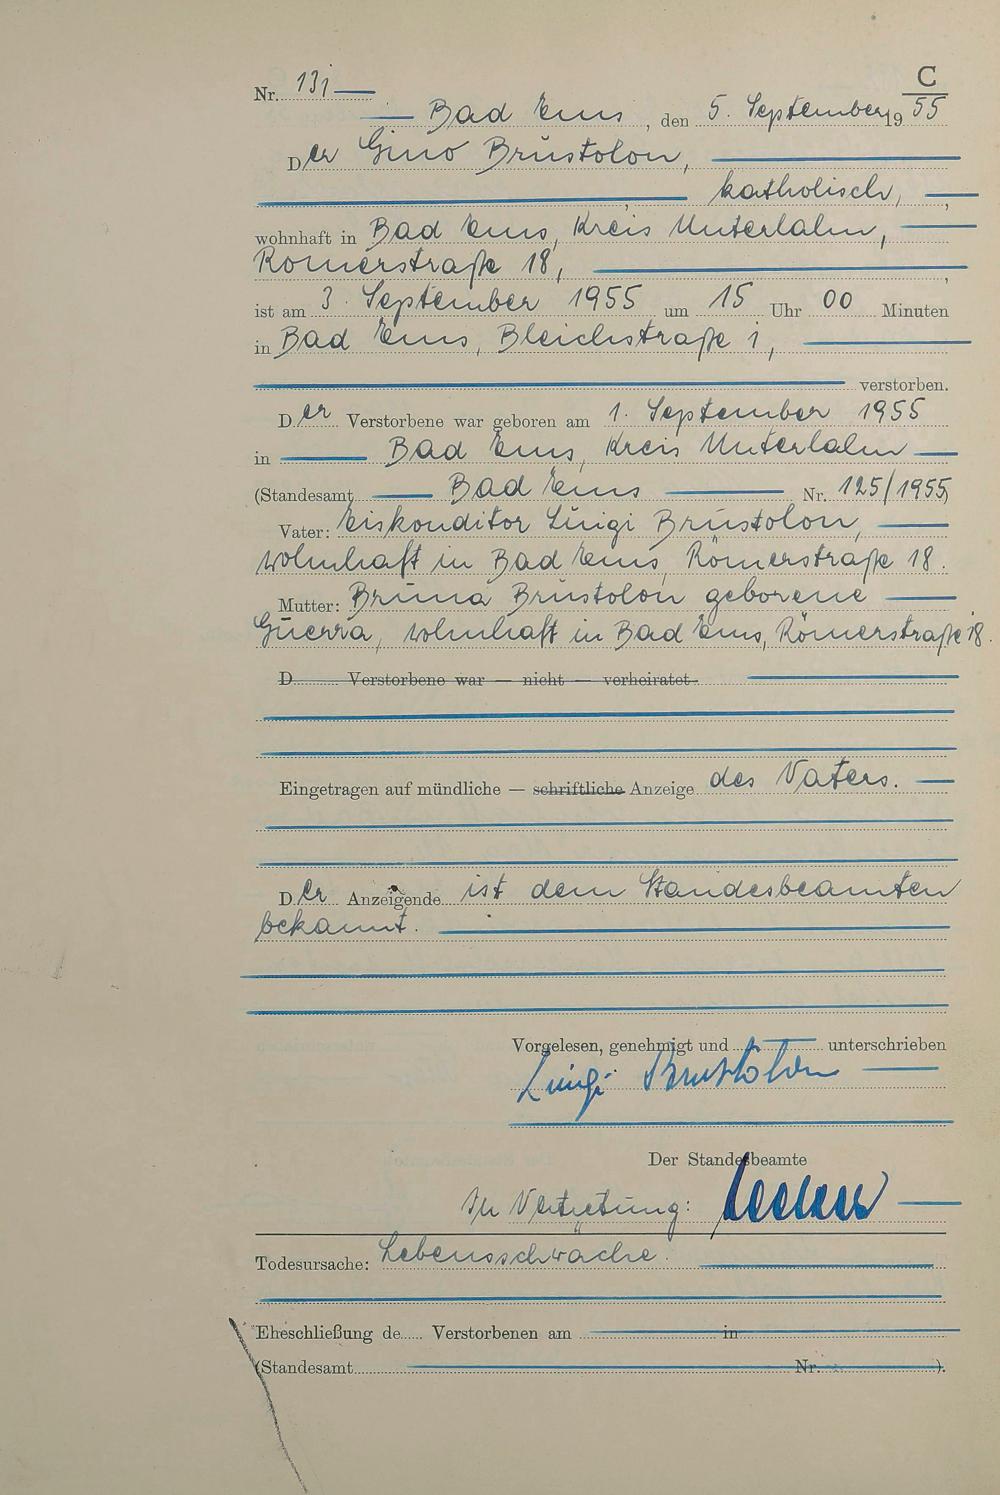 C
Nr. 131
Bad Ems, den 5. September 19 55
Der Gino Brustolon,
katholisch,
wohnhaft in Bad Ems, Kreis Unterlahn,
Römerstraße 18,
ist am 3. September 1955 um 15 Uhr 00 Minuten
in Bad Ems, Bleichstraße 1,
verstorben.
Der Verstorbene war geboren am 1. September 1955
in Bad Ems, Kreis Unterlahn
(Standesamt Bad Ems Nr. 125/1955)
Vater: Eiskonditor Luigi Brustolon,
wohnhaft in Bad Ems, Römerstraße 18.
Mutter: Bruna Brustolon geborene
Guerra, wohnhaft in Bad Ems, Römerstraße 18.
D Verstorbene war — nicht — verheiratet
Eingetragen auf mündliche — schriftliche Anzeige des Vaters.
Der Anzeigende ist dem Standesbeamten
bekannt.
Vorgelesen, genehmigt und unterschrieben
Luigi Brustolon
Der Standesbeamte
In Vertretung:
Todesursache: Lebensschwäche.
Eheschließung de Verstorbenen am in
(Standesamt Nr. ).